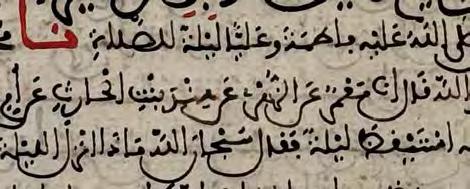 صلى الله عليه فاطمة وعليا ليلة للصلاة نا
الله قال انا معمر عن الزهري عن هند بنت الحارث عن ام
استيقظ ليلة فقال سبحان الله ماذا انزل الليلة